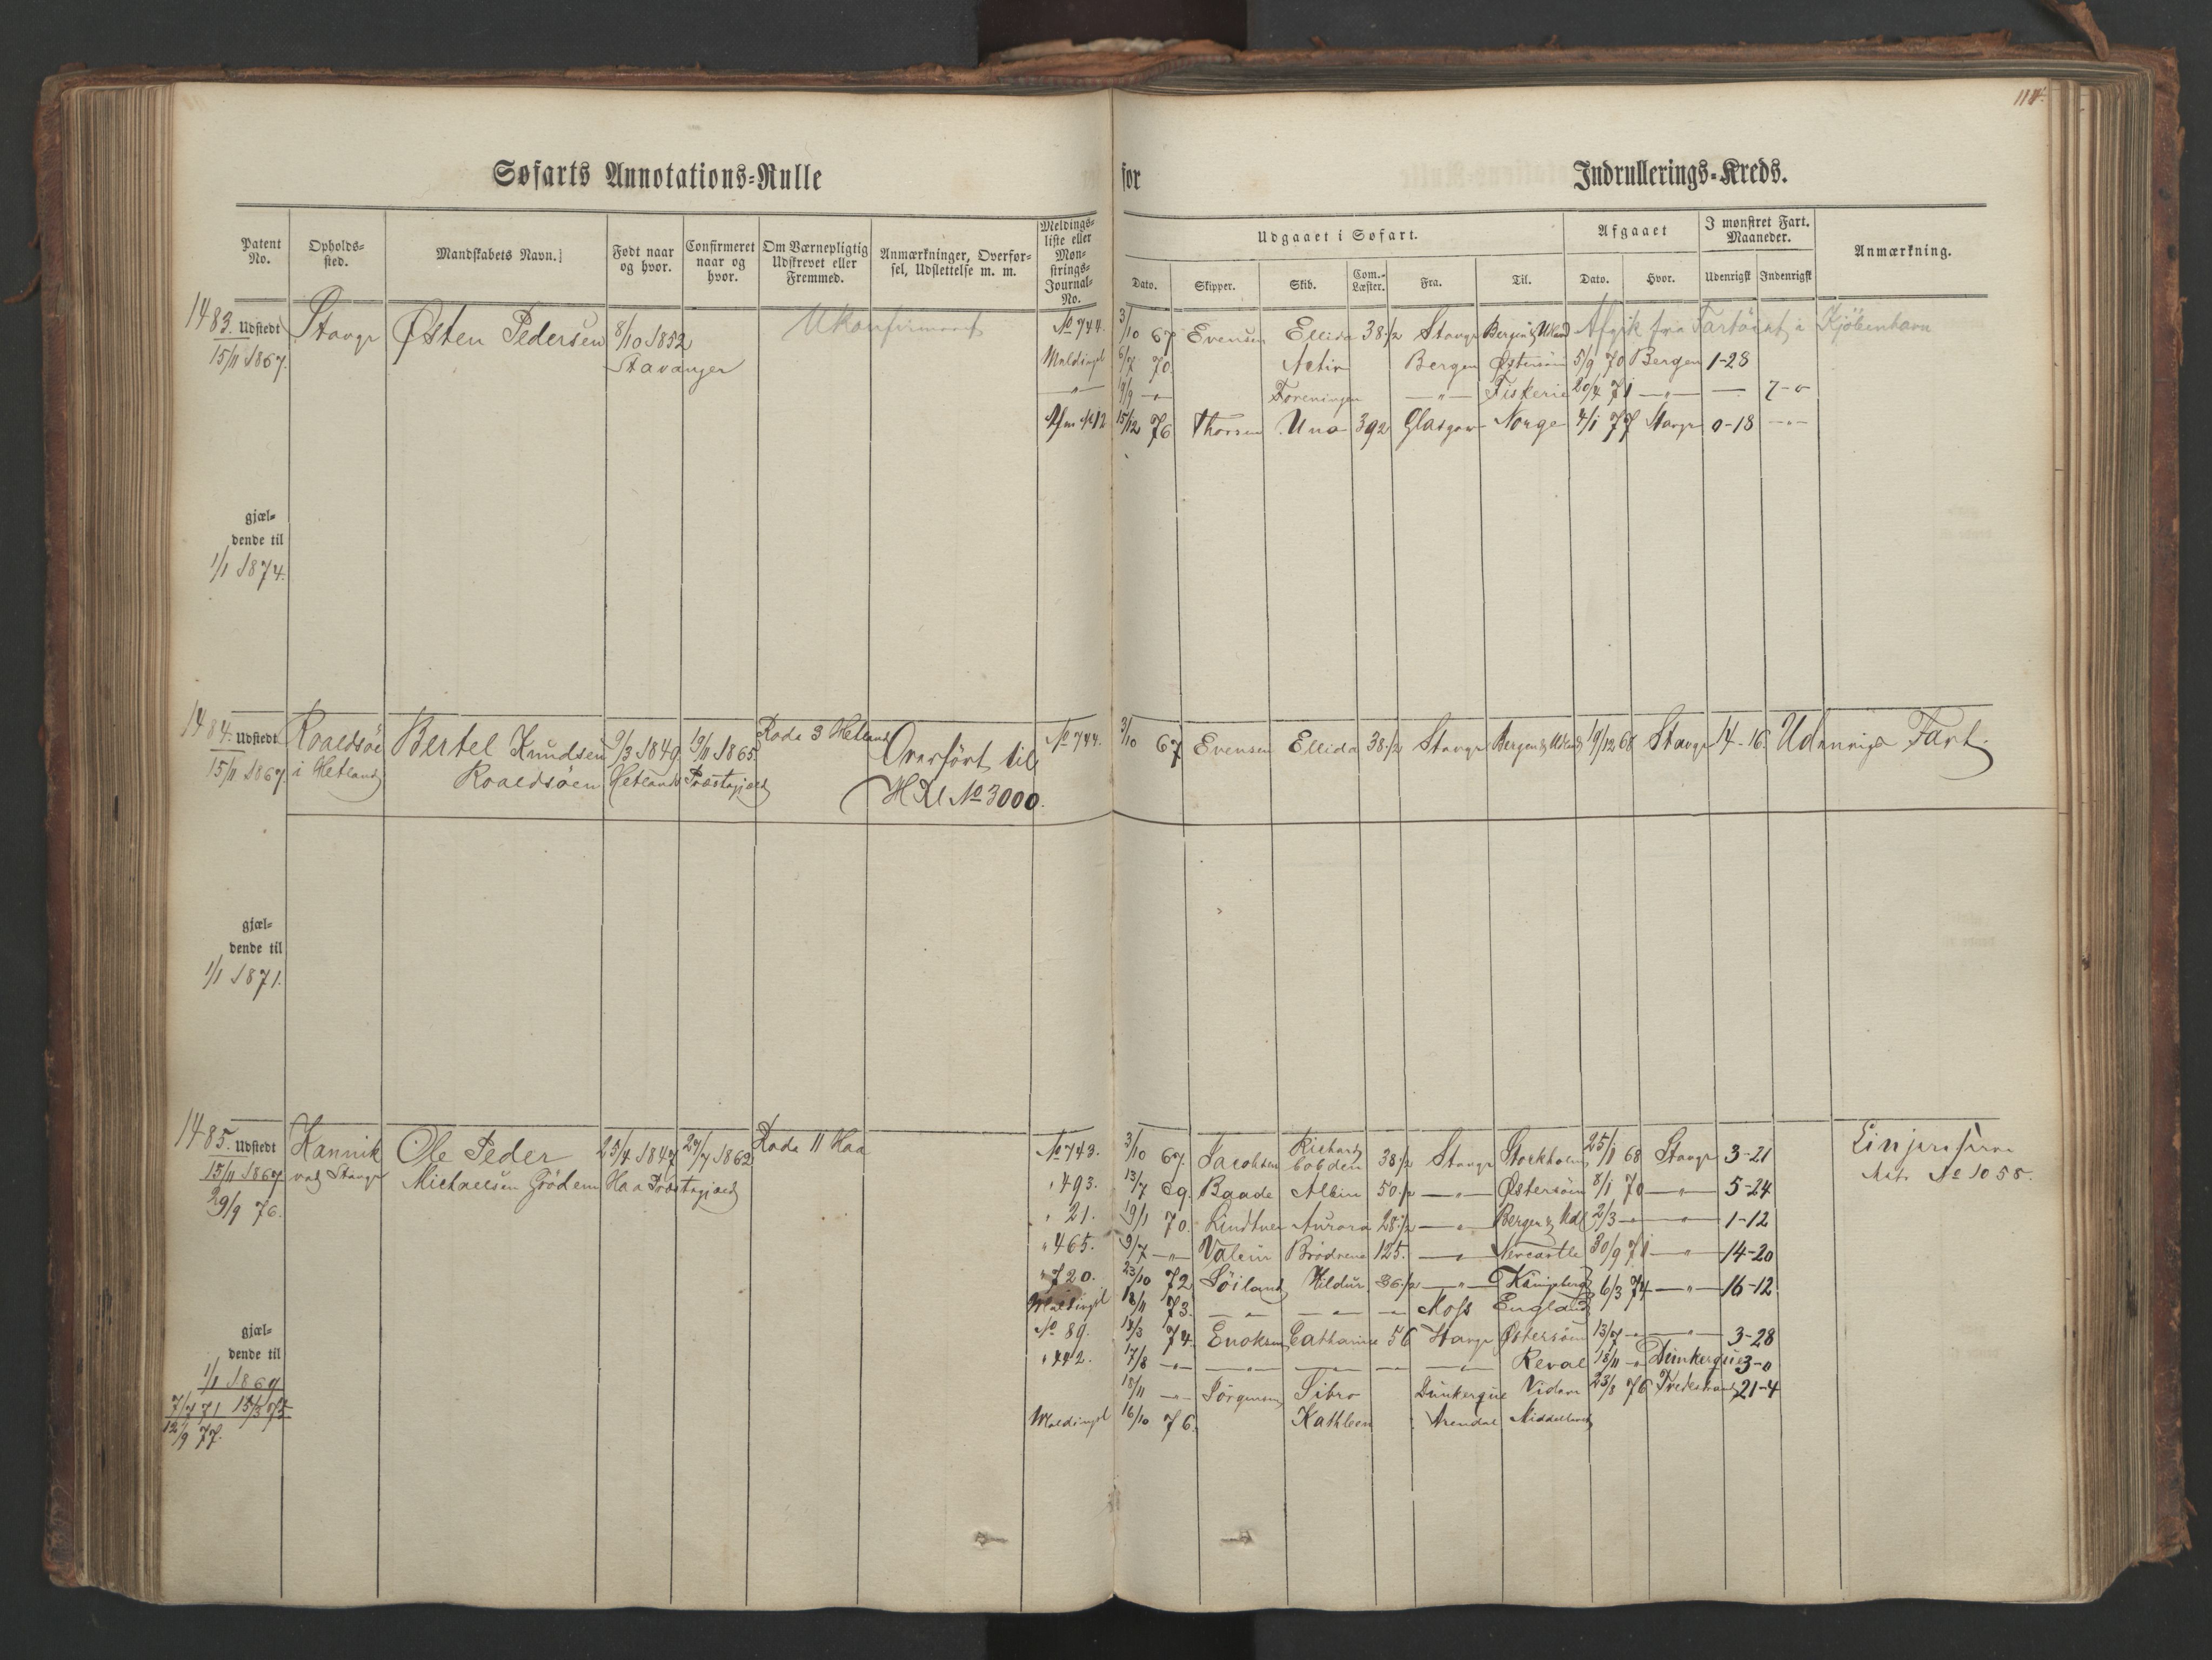 114.
Søfarts Annotations-Rulle for Indrullerings-Kreds.
Patent No. Opholds-sted. Mandskabets Navn. Født naar og hvor. Confirmeret naar og hvor. Om Værnepligtig Udskrevet eller Fremmed. Anmærkninger, Overfør-sel, Udslettelse m. m. Meldings-liste eller Møn-strings-Journal-No.
Udgaaet i Søfart. Afgaaet I mønstret Fart. Maaneder. Anmærkning.
Dato. Skipper. Skib. Com.-Læster. Fra. Til. Dato. Hvor. Udenrigsk Indenrigsk
1483. Udstedt Stavgr Østen Pedersen 8/10 1852 Ukonfirmeret No 744. 3/10 67 Evensen Ellida 38 1/2 Stavgr Bergen & Udland Afgik fra Fartöiet i Kjöbenhavn
15/11 1867. Stavanger Meldingsl 6/7 70. Activ Bergen Østersöen 5/9 70 Bergen 1-28
—"— 19/9 —"— Foreningen —"— Fiskerie 20/4 71 —"— — 7-0
Afm No 12 15/12 76 Thorsen Una 392 Glasgow Norge 4/1 77 Stavgr 0-18 —"—
gjæl-
dende til
1/1 1874.
1484. Udstedt Roaldsöe Bertel Knudsen 9/3 1849 19/11 1865. Rode 3 Hetland Overfört til No 744. 3/10 67 Evensen Ellida 38 1/2 Stavgr Bergen & Udland 19/12 68 Stavgr 14-16. Udenrigs Fart.
15/11 1867. i Hetland Roaldsöen Hetlands Præstegjæld HRl No 3000.
gjæl-
dende til
1/1 1871.
1485. Udstedt Hannik Ole Peder 25/4 1847 27/7 1862 Rode 11 Haa No 743. 3/10 67. Jacobsen Richard Cobden 38 1/2 Stavgr Stockholm 25/1 68 Stavgr 3-21
15/11 1867 ved Stavgr Michaelsen Grödem Haa Præstegjæld " 493. 13/7 69. Baade Albin 50 1/2 —"— Østersöen 8/1 70 —"— 5-24 Mt. No 1055.
29/9 76. " 21. 19/1 70. Lindtner Aurora 28 1/2 —"— Bergen & Udl 2/3 —"— —"— 1-12
" 465. 9/7 —"— Valein Brödrene 125. —"— Newcastle 30/9 71 —"— 14-20
" 720. 23/10 72 Söiland Hildur 36 1/2 —"— Künigsberg 6/3 74 —"— 16-12
Meldingsl 18/11 73. —"— —"— —"— Moss England
No 89. 18/3 74. Enoksen Catharine 56 Stavgr Østersöen 13/7 —"— —"— 3-28
" 442. 17/8 —"— —"— —"— —"— —"— Reval 18/11 —"— Dünkerque 3-0
18/11 —"— Jörgensen Sibro Dünkerque 23/8 76 Tvedestrand 21-4
Meldingsl 16/10 76. Kathleen Arendal
gjæl-
dende til
1/1 1869
7/7 71 15/3 75
12/9 77.